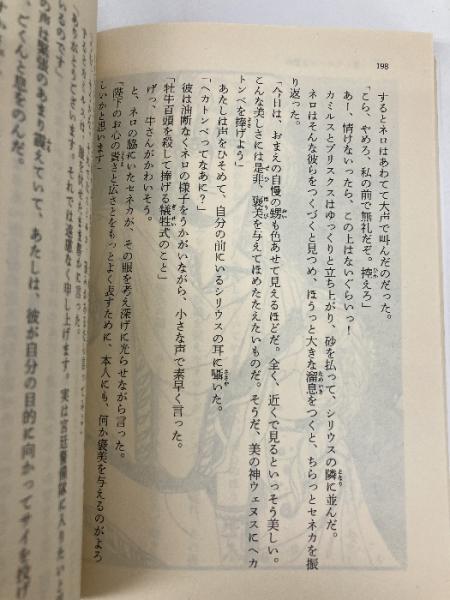 198
するとネロはあわてて大声で叫んだのだった。
「こら、やめろ、私の前で無礼だぞ。控えろ」
あー、情けないったら、この上はないぐらいっ!
カミルスとプリスクスはゆっくりと立ち上がり、砂を払って、シリウスの隣に並んだ。
ネロはそんな彼らをつくづくと見つめ、ほうっと大きな溜息をつくと、ちらっとセネカを振
り返った。
「今日は、おまえの自慢の甥も色あせて見えるほどだ。全く、近くで見るといっそう美しい。
こんな美しさには是非、褒美を与えてほめたたえたいものだ。そうだ、美の神ウェヌスにヘカ
トンベを捧げよう」
あたしは声をひそめて、自分の前にいるシリウスの耳に囁いた。
「ヘカトンベってなあに?」
彼は油断なくネロの様子をうかがいながら、小さな声で素早く言った。
「牡牛百頭を殺して捧げる犠牲式のこと」
げっ、牛さんがかわいそう。
と、ネロの脇にいたセネカが、その眼を考え深げに光らせながら言った。
「陛下のお心の貴さと広さとをもっとよく表すために、本人にも、何か褒美を与えるのがよろ
しいかと思います」
それでは遠慮なく申し上げます。実は宮廷警備隊に入りたい
いるのです」
の声は緊張のあまり震えていて、あたしは、彼が自分の目的に向かってサイを投げ
ごくんと息をのんだ。